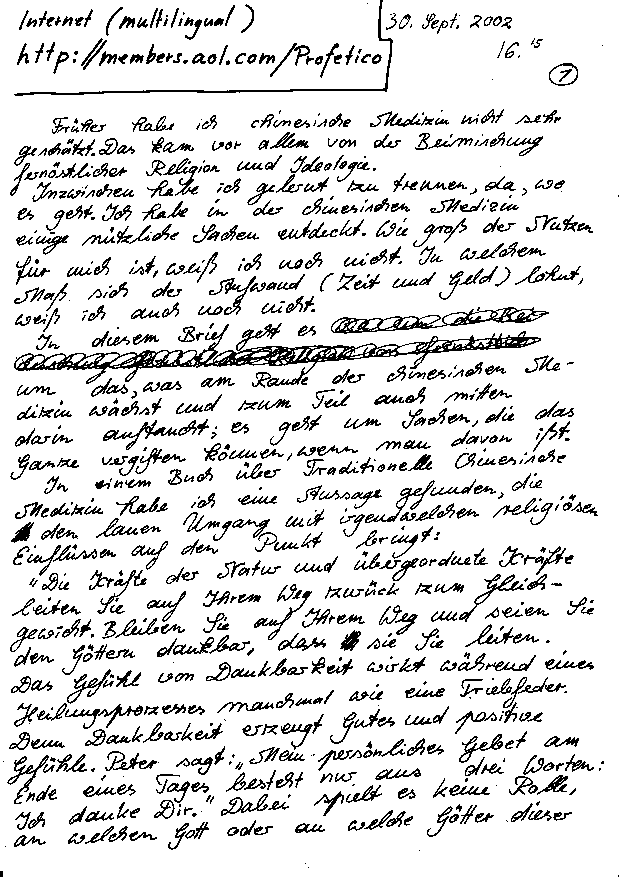 Internet (multilingual)
http://members.aol.com/Profetico
30. Sept. 2002
16.15
1
Früher habe ich chinesische Medizin nicht sehr
geschätzt. Das kam vor allem von der Beimischung
fernöstlicher Religion und Ideologie.
Inzwischen habe ich gelernt zu trennen, da, wo
es geht. Ich habe in der chinesischen Medizin
einige nützliche Sachen entdeckt. Wie groß der Nutzen
für mich ist, weiß ich noch nicht. In welchem
Maß sich der Aufwand (Zeit und Geld) lohnt,
weiß ich auch noch nicht.
In diesem Brief geht es
um das, was am Rande der chinesischen Me-
dizin wächst und zum Teil auch mitten
darin auftaucht; es geht um Sachen, die das
Ganze vergiften können, wenn man davon ißt.
In einem Buch über Traditionelle Chinesische
Medizin habe ich eine Aussage gefunden, die
den lauen Umgang mit irgendwelchen religiösen
Einflüssen auf den Punkt bringt:
"Die Kräfte der Natur und übergeordnete Kräfte
leiten Sie auf Ihrem Weg zurück zum Gleich-
gewicht. Bleiben Sie auf Ihrem Weg und seien Sie
den Göttern dankbar, dass sie Sie leiten.
Das Gefühl von Dankbarkeit wirkt während eines
Heilungsprozesses manchmal wie eine Triebfeder.
Denn Dankbarkeit erzeugt Gutes und positive
Gefühle. Peter sagt: „Mein persönliches Gebet am
Ende eines Tages besteht nur aus drei Worten:
Ich danke Dir." Dabei spielt es keine Rolle,
an welchen Gott oder an welche Götter dieser